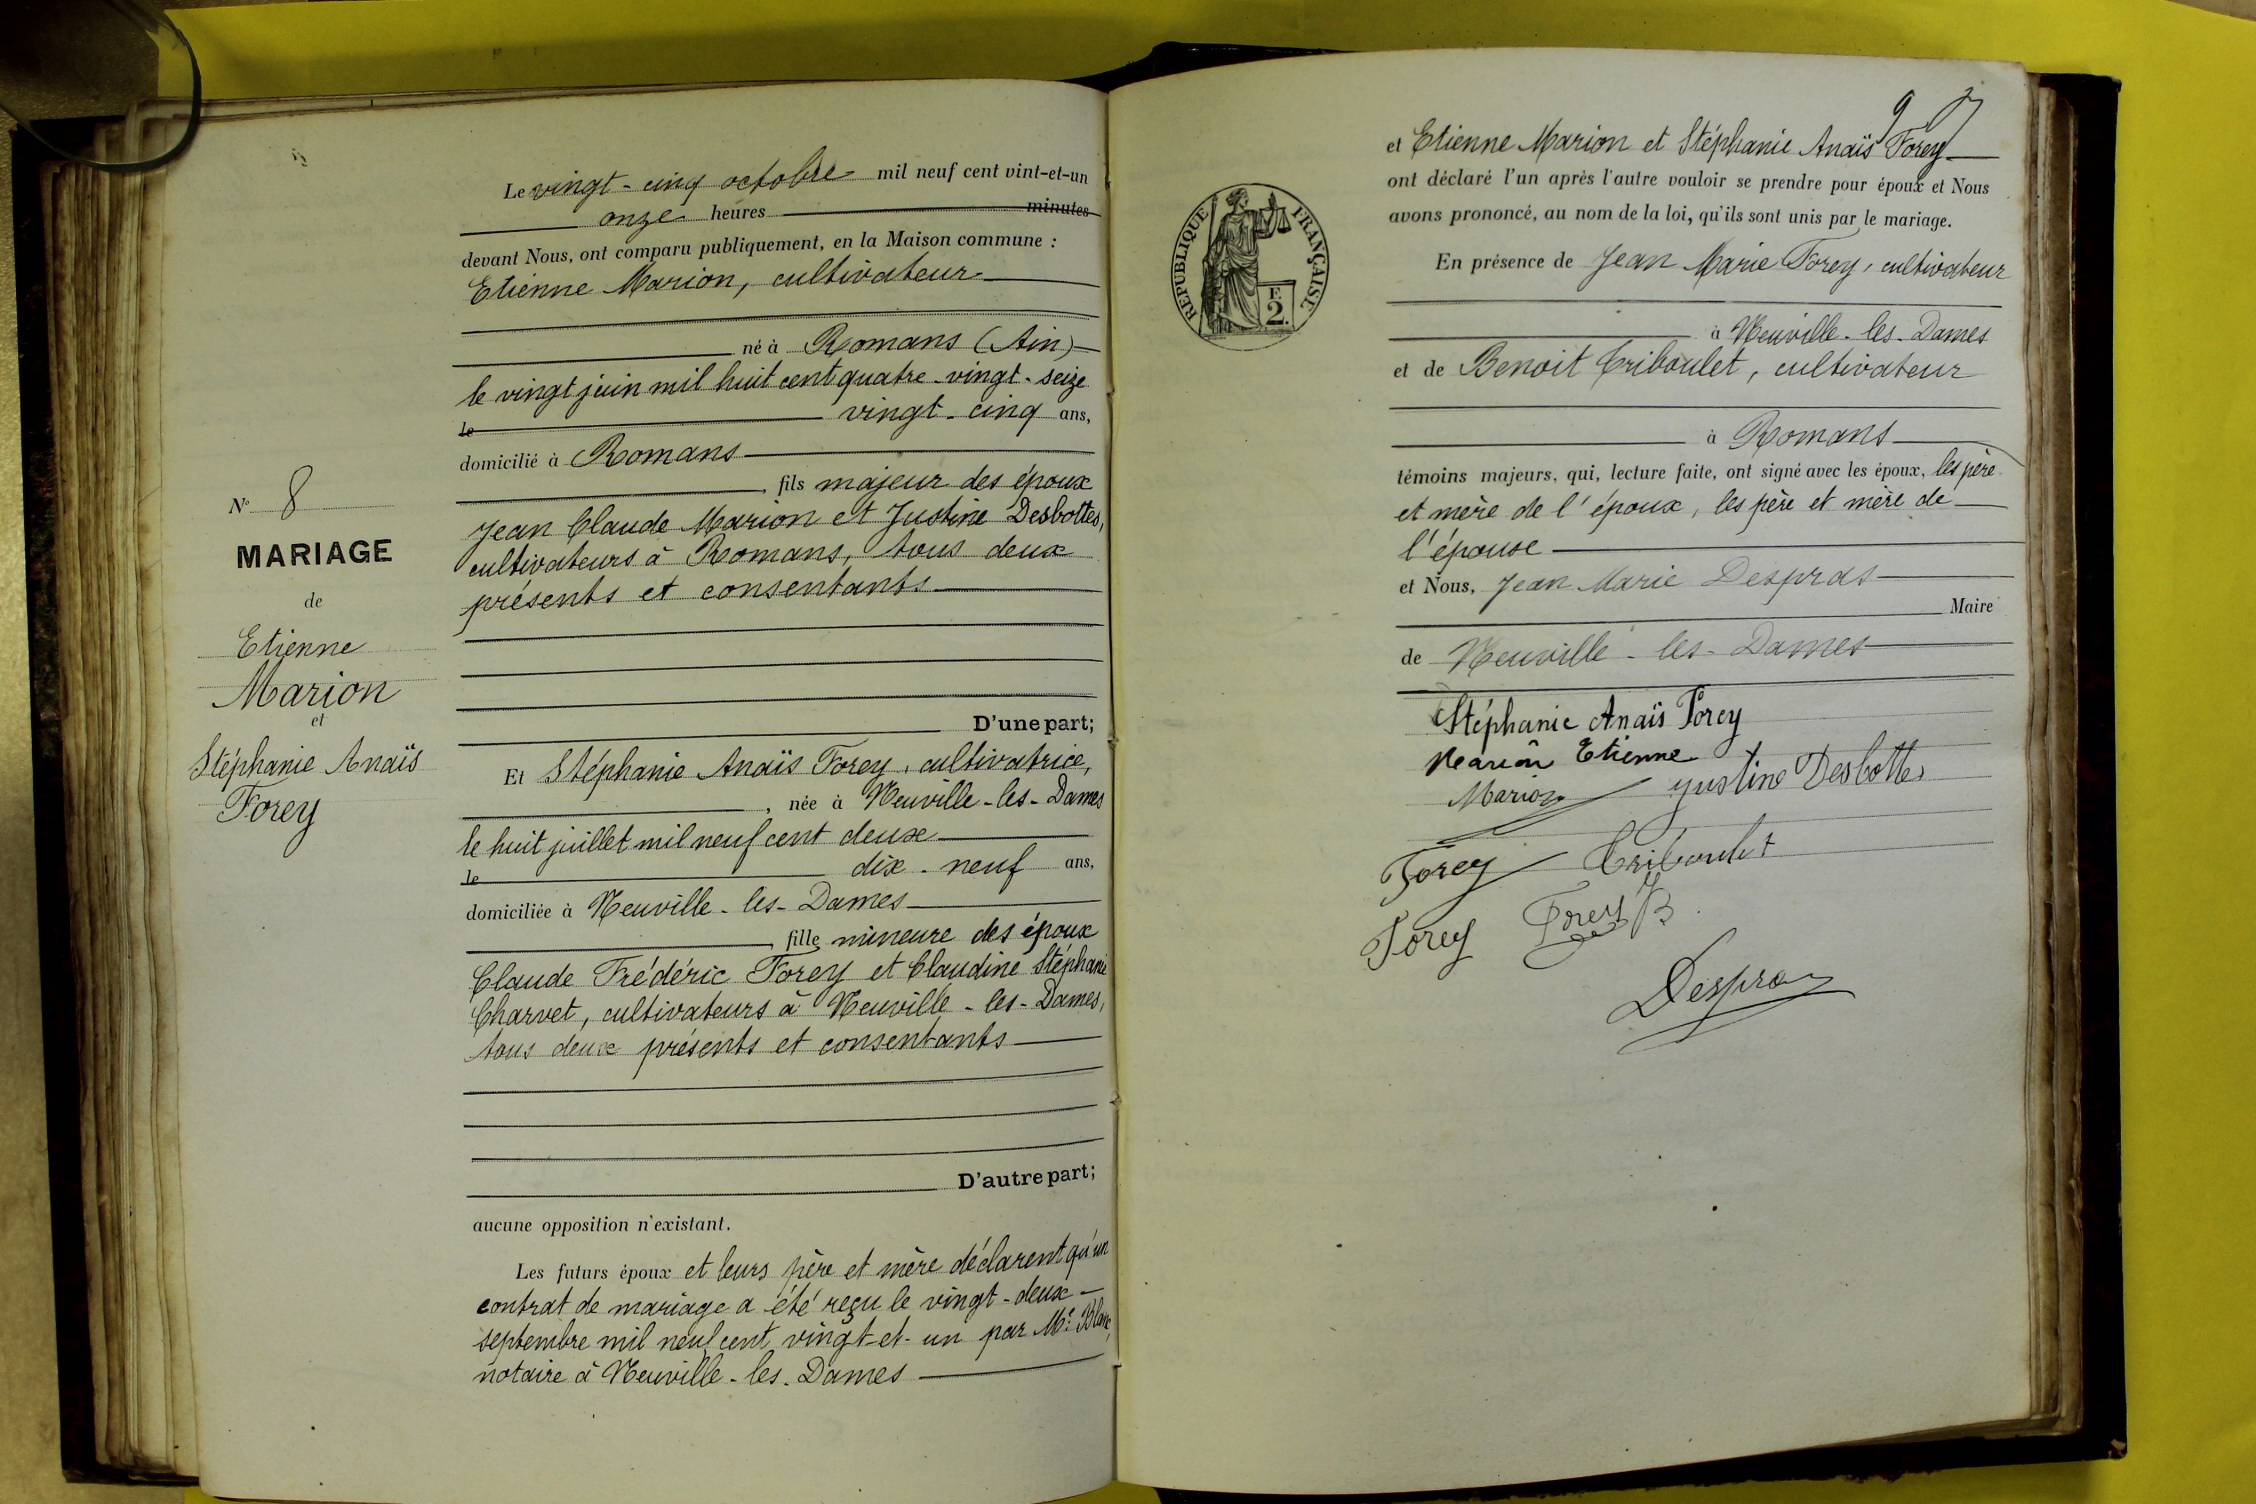 N° 8
MARIAGE
de
Etienne
Marion
et
Stéphanie Anaïs
Forey
Le vingt-cinq octobre mil neuf cent vint-et-un
onze heures minutes
devant Nous, ont comparu publiquement, en la Maison commune :
Etienne Marion, cultivateur
né à Romans (Ain)
le vingt juin mil huit cent quatre-vingt-seize
le vingt-cinq ans,
domicilié à Romans
, fils majeur des époux
Jean Claude Marion et Justine Desbottes,
cultivateurs à Romans, tous deux
présents et consentants
D'une part;
Et Stéphanie Anaïs Forey, cultivatrice,
, née à Neuville-les-Dames
le huit juillet mil neuf cent deux
le dix-neuf ans,
domiciliée à Neuville-les-Dames
, fille mineure des époux
Claude Frédéric Forey et Claudine Stéphanie
Charvet, cultivateurs à Neuville-les-Dames,
tous deux présents et consentants
D'autre part;
aucune opposition n'existant.
Les futurs époux et leurs père et mère déclarent qu'un
contrat de mariage a été reçu le vingt-deux
septembre mil neuf cent vingt-et-un par Me Blanc,
notaire à Neuville-les-Dames
9
et Etienne Marion et Stéphanie Anaïs Forey
ont déclaré l'un après l'autre vouloir se prendre pour époux et Nous
avons prononcé, au nom de la loi, qu'ils sont unis par le mariage.
RÉPUBLIQUE FRANÇAISE
F.
2.
En présence de Jean Marie Forey, cultivateur
à Neuville-les-Dames
et de Benoit Criboulet, cultivateur
à Romans
témoins majeurs, qui, lecture faite, ont signé avec les époux, les père
et mère de l'époux, les père et mère de
l'épouse
et Nous, Jean Marie Despras
Maire
de Neuville-les-Dames
Stéphanie Anaïs Forey
Marion Etienne
Marion Justine Desbottes
Forey Criboulet
Forey Forey B
Despras